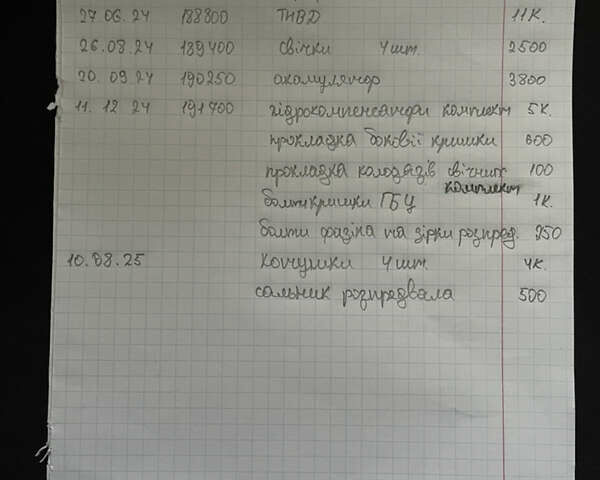 27.06.24 188800 ТНВД 11к.
26.08.24 189400 свічки 4шт. 2500
20.09.24 190250 акамулятор 3800
11.12.24 191700 гідрокомпенсатори комплект 5к.
прокладка бокової кришки 600
прокладка колодязів свічних 100
комплект
болти кришки ГБЦ 1к.
болти фазіка та зірки розпред. 950
10.08.25 4шт. 4к.
сальник розпредвала 500